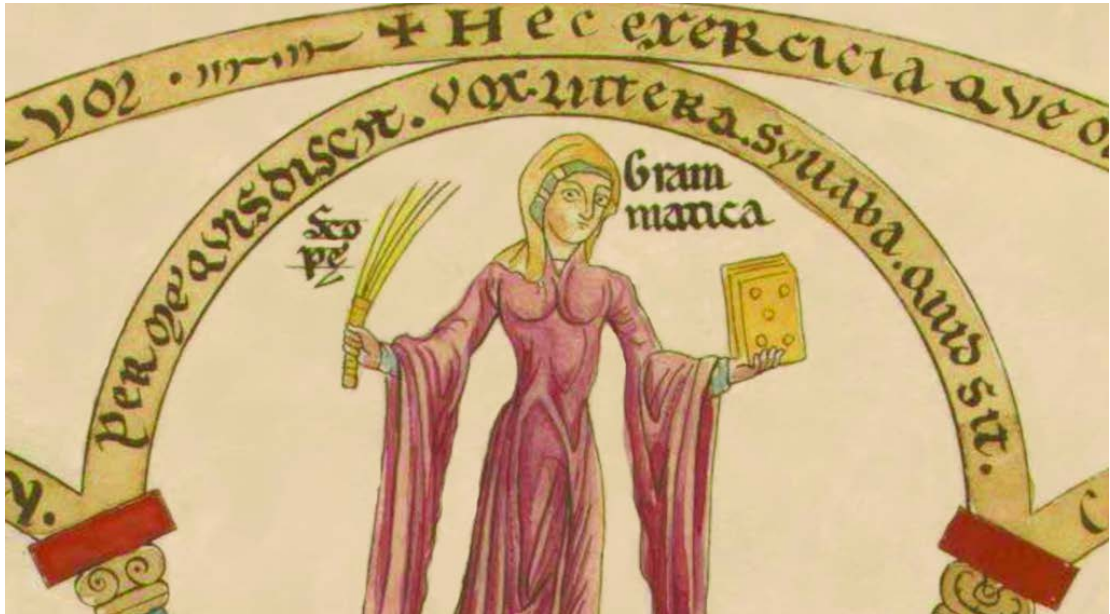 VOS · + Hec exercicia que
per me quis discit. vox. littera. syllaba. quid sit.
Sco
pę
Gram
matica